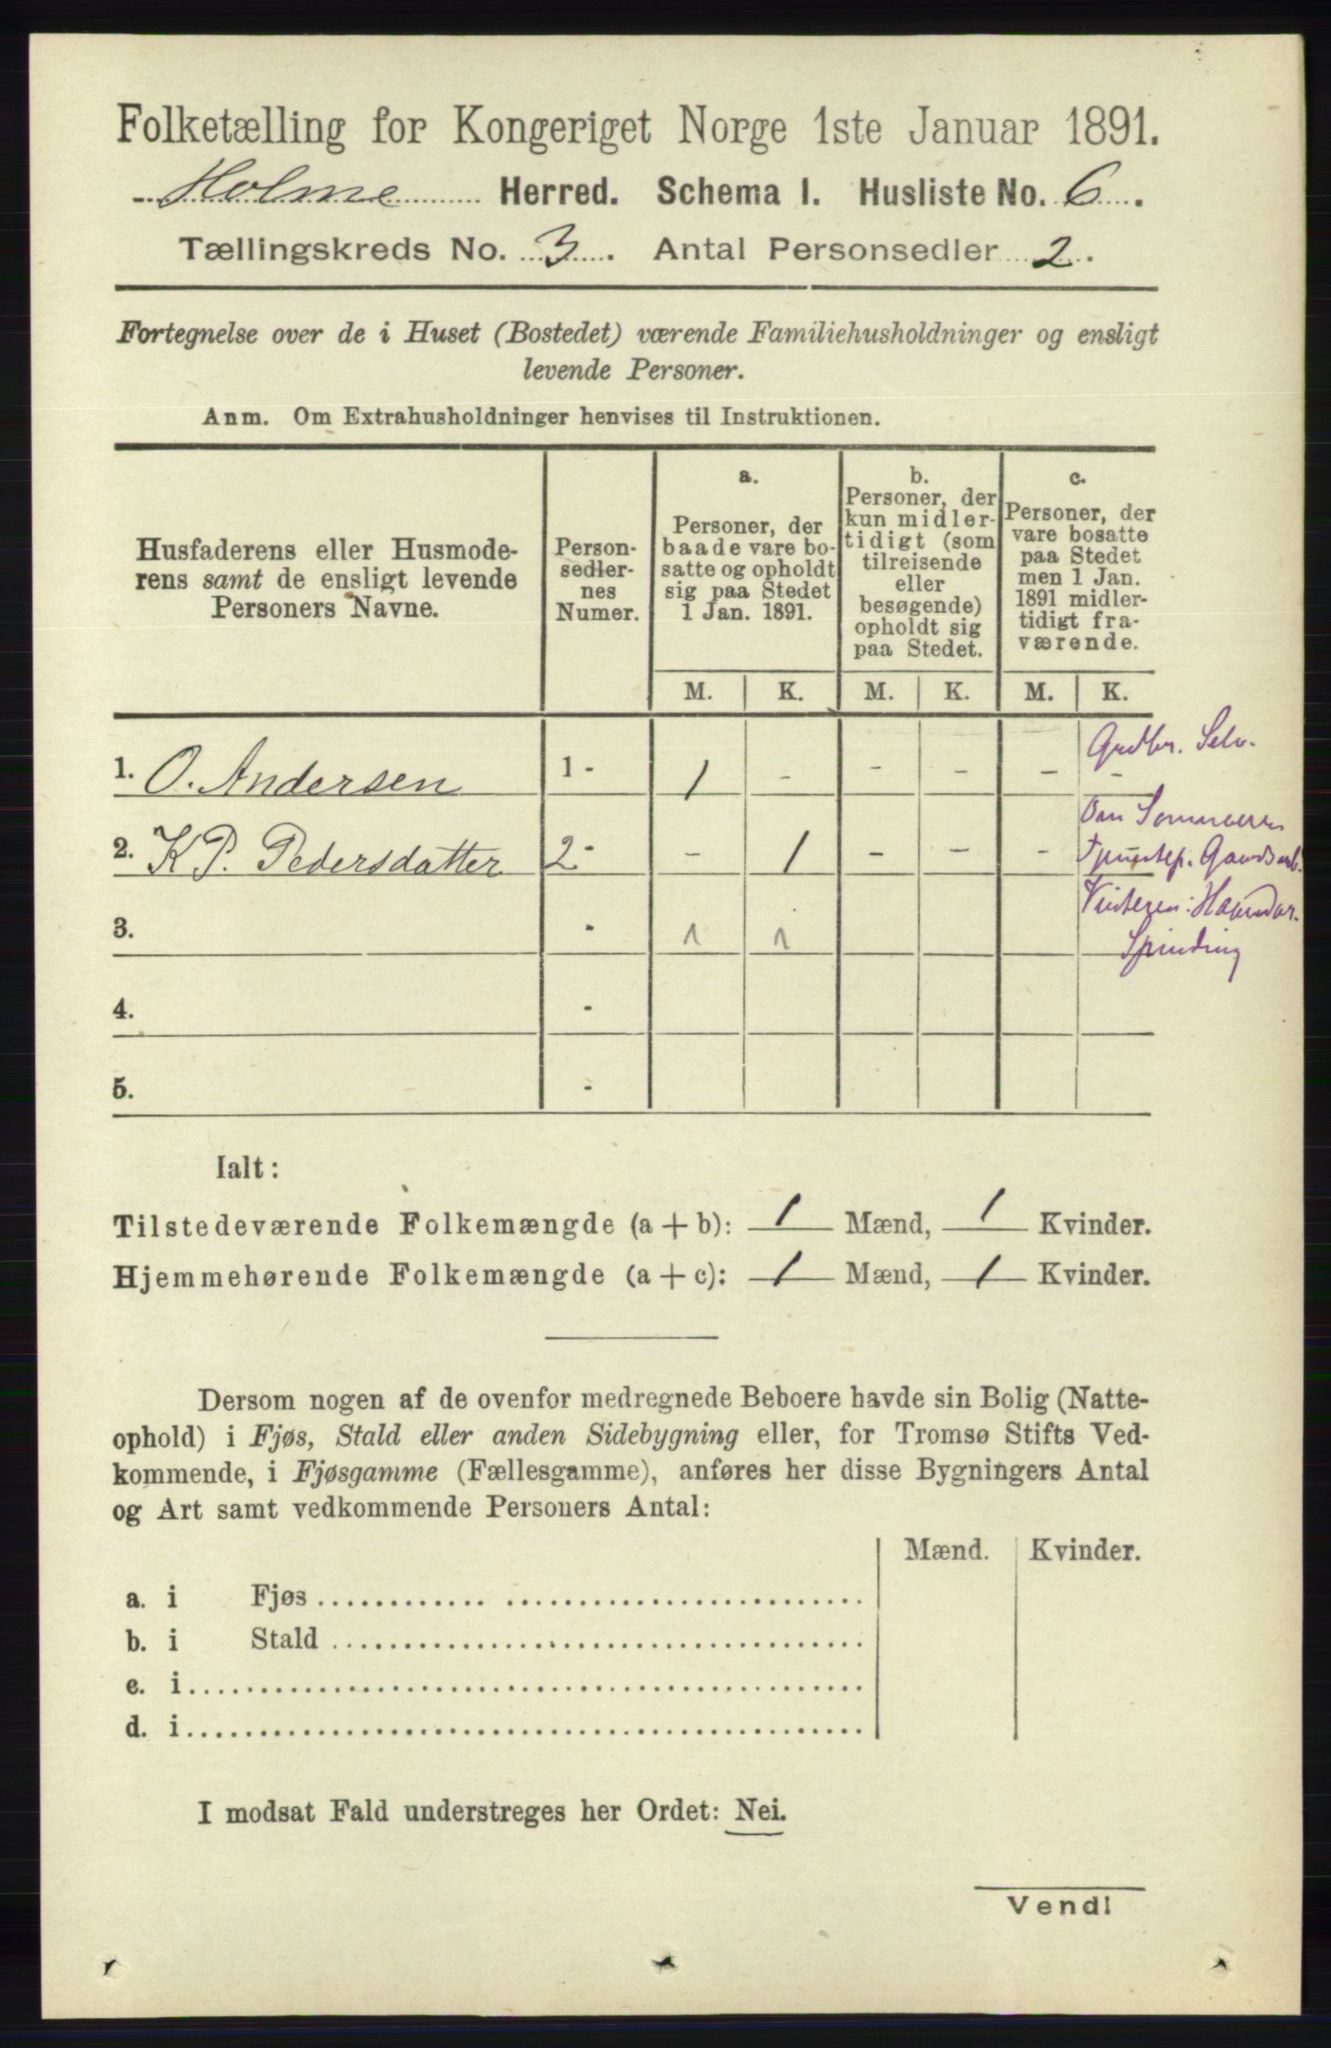 Folketælling for Kongeriget Norge 1ste Januar 1891.
Holme Herred. Schema 1. Husliste No. 6.
Tællingskreds No. 3. Antal Personsedler 2.
Fortegnelse over de i Huset (Bostedet) værende Familiehusholdninger og ensligt
levende Personer.
Anm. Om Extrahusholdninger henvises til Instruktionen.
Husfaderens eller Husmode-
rens samt de ensligt levende
Personers Navne.
Person-
sedler-
nes
Numer.
a.
Personer, der
baade vare bo-
satte og opholdt
sig paa Stedet
1 Jan. 1891.
b.
Personer, der
kun midler-
tidigt (som
tilreisende
eller
besøgende)
opholdt sig
paa Stedet.
c.
Personer, der
vare bosatte
paa Stedet
men 1 Jan.
1891 midler-
tidigt fra-
værende.
M. K. M. K. M. K.
1. O. Andersen 1 - 1 - - - - -
Gudbr. Selv.
2. K P. Pedersdatter 2 - - 1 - - -
Om Sommeren
3. - 1 1
Spinding
4. -
5. -
Ialt:
Tilstedeværende Folkemængde (a + b): 1 Mænd, 1 Kvinder.
Hjemmehørende Folkemængde (a + c): 1 Mænd, 1 Kvinder.
Dersom nogen af de ovenfor medregnede Beboere havde sin Bolig (Natte-
ophold) i Fjøs, Stald eller anden Sidebygning eller, for Tromsø Stifts Ved-
kommende, i Fjøsgamme (Fællesgamme), anføres her disse Bygningers Antal
og Art samt vedkommende Personers Antal:
Mænd. Kvinder.
a. i Fjøs
b. i Stald
e. i
d. i
I modsat Fald understreges her Ordet: Nei.
Vend!